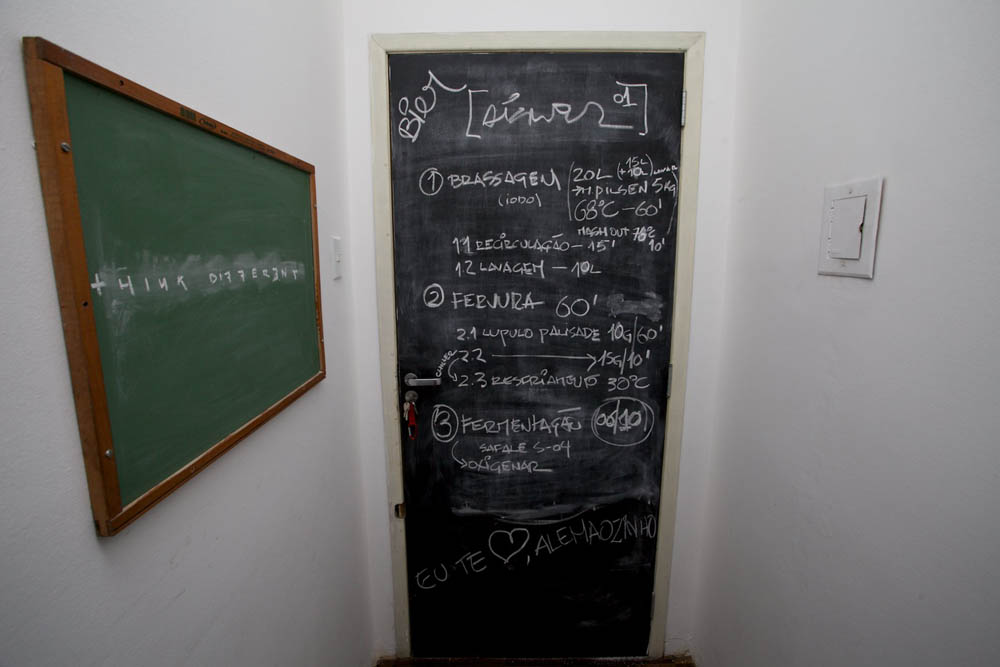 +HINK DIFFERENT
Bier
01
① BRASSAGEM
(IODO)
20L (+10L 15L
→M.PILSEN 5KG
68°C - 60'
MASH OUT 78°C
10'
1.1 RECIRCULAÇÃO - 15'
1.2 LAVAGEM - 10L
② FERVURA 60'
2.1 LUPULO PALISADE 10G/60'
2.2 → 15G/10'
CHILLER
2.3 RESFRIAMENTO 30°C
③ FERMENTAÇÃO 06/10
SAFALE S-04
→OXIGENAR
EU TE ♡, ALEMAOZINHO